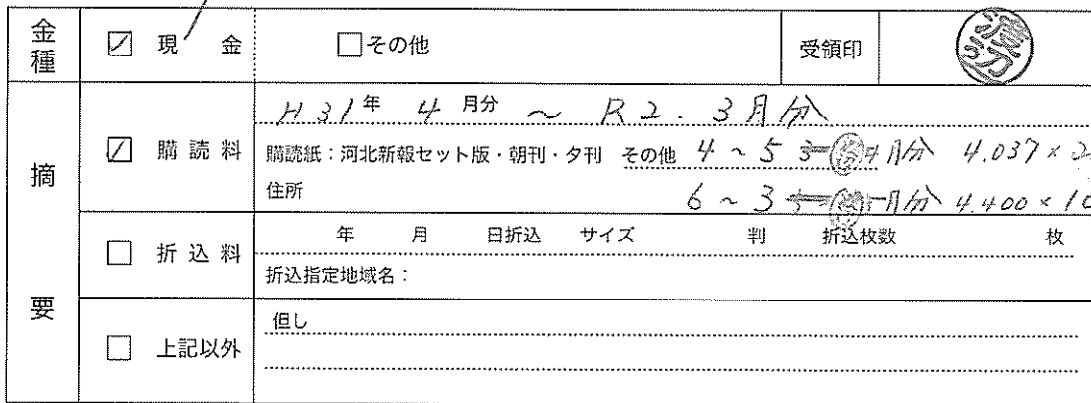 金種 ☑ 現金 □その他 受領印
摘要
☑ 購読料 H31年 4月分 ~ R2. 3月分
購読紙：河北新報セット版・朝刊・夕刊 その他 4~5 月分 4.037×2
住所 6~3 月分 4.400×10
□ 折込料 年 月 日折込 サイズ 判 折込枚数 枚
折込指定地域名：
□ 上記以外 但し